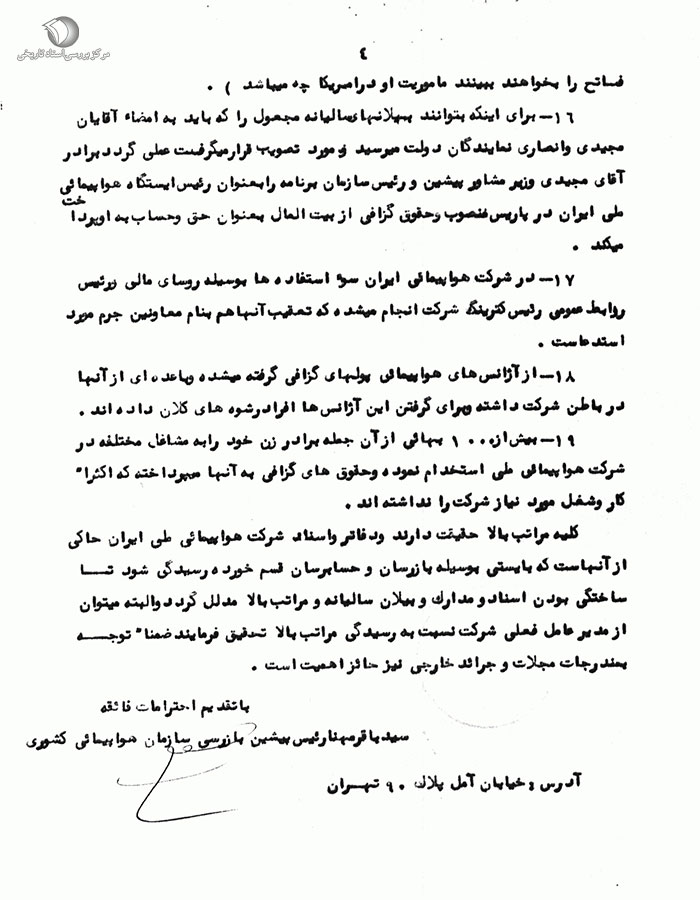 مرکز بررسی اسناد تاریخی
٤
فساتح را بخواهند ببینند ماموریت او در امریکا چه میباشد ) .
١٦- برای اینکه بتوانند بیلانهای سالیانه مجعول را که باید به امضاء آقایان
مجیدی وانصاری نمایندگان دولت میرسید و مورد تصویب قرار میگرفت عملی گردد برادر
آقای مجیدی وزیر مشاور پیشین و رئیس سازمان برنامه را بعنوان رئیس ایستگاه هواپیمائی
ملی ایران در پاریس منصوب وحقوق گزافی از بیت المال بعنوان حق وحساب به او پرداخت
میکند .
١٧- در شرکت هواپیمائی ایران سوء استفاده ها بوسیله روسای مالی ورئیس
روابط عمومی رئیس کترینگ شرکت انجام میشده که تعقیب آنها هم بنام معاونین جرم مورد
استدعاست .
١٨- از آژانس های هواپیمائی پولهای گزافی گرفته میشده وباعده ای از آنها
در باطن شرکت داشته وبرای گرفتن این آژانس ها افراد رشوه های کلان داده اند .
١٩- بیش از ١٠٠٠ بهائی از آن جمله برادر زن خود را به مشاغل مختلفه در
شرکت هواپیمائی ملی استخدام نموده وحقوق های گزافی به آنها میپرداخته که اکثرا"
کار وشغل مورد نیاز شرکت را نداشته اند .
کلیه مراتب بالا حقیقت دارند ودفاتر واسناد شرکت هواپیمائی ملی ایران حاکی
از آنهاست که بایستی بوسیله بازرسان و حسابرسان قسم خورده رسیدگی شود تا
ساختگی بودن اسناد و مدارك و بیلان سالیانه و مراتب بالا مدلل گردد والبته میتوان
از مدیر عامل فعلی شرکت نسبت به رسیدگی مراتب بالا تحقیق فرمایند ضمنا" توجه
بمندرجات مجلات و جرائد خارجی نیز حائز اهمیت است .
باتقدیم احترامات فائقه
سید باقر مهنا رئیس پیشین بازرسی سازمان هواپیمائی کشوری
آدرس : خیابان آمل پلاك ٩٠ تهران